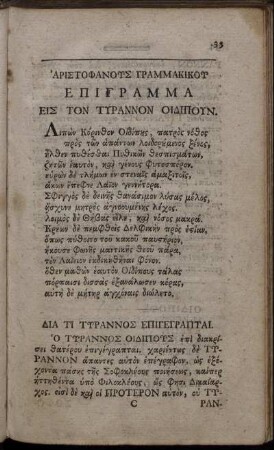 35
ἈΡΙΣΤΟΦΑΝΟΥΣ ΓΡΑΜΜΑΚΙΚΟΥ
ΕΠΙΓΡΑΜΜΑ
ΕΙΣ ΤΟΝ ΤΥΡΑΝΝΟΝ ΟΙΔΙΠΟΥΝ.
Λιπὼν Κόρινθον Οἰδίπους, πατρὸς νόθος
πρὸς τῶν ἁπάντων λοιδορούμενος ξένος,
ἦλθεν πυθέσθαι Πυθικῶν θεσπισμάτων,
ζητῶν ἑαυτὸν, καὶ γένους φυτοσπόρον.
εὑρὼν δὲ τλήμων ἐν στεναῖς ἁμαξιτοῖς,
ἄκων ἔπεφνε Λάϊον γεννήτορα.
Σφιγγὸς δὲ δεινῆς θανάσιμον λύσας μέλος,
ᾔσχυνε μητρὸς ἀγνοουμένης λέχος.
λοιμὸς δὲ Θήβας εἷλε, καὶ νόσος μακρά.
Κρέων δὲ πεμφθεὶς Δελφικὴν πρὸς ἑστίαν,
ὅπως πύθοιτο τοῦ κακοῦ παυστήριον,
ἤκουσε Φωνῆς μαντικῆς θεοῦ πάρα,
τὸν Λαΐειον ἐκδικηθῆναι Φόνον.
ὅθεν μαθὼν ἑαυτὸν Οἰδίπους τάλας
πόρπαισι δισσὰς ἐξανάλωσεν κόρας,
αὐτὴ δὲ μήτηρ ἀγχόναις διώλετο.
ΔΙΑ ΤΙ ΤΥΡΑΝΝΟΣ ΕΠΙΓΕΓΡΑΠΤΑΙ.
Ὁ ΤΥΡΑΝΝΟΣ ΟΙΔΙΠΟΥΣ ἐπὶ διακρί-
σει θατέρου ἐπιγέγραπται. χαριέντως δὲ ΤΥ-
ΡΑΝΝΟΝ ἅπαντες αὐτὸν ἐπέγραφον, ὡς ἐξέ-
χοντα πάσης τῆς Σοφοκλέους ποιήσεως, καίπερ
ἡττηθέντα ὑπὸ Φιλοκλέους, ὥς Φησι Δικαίαρ-
χος. εἰσὶ δὲ καὶ οἱ ΠΡΟΤΕΡΟΝ αὐτὸν, οὐ ΤΥ-
C ΡΑΝ-